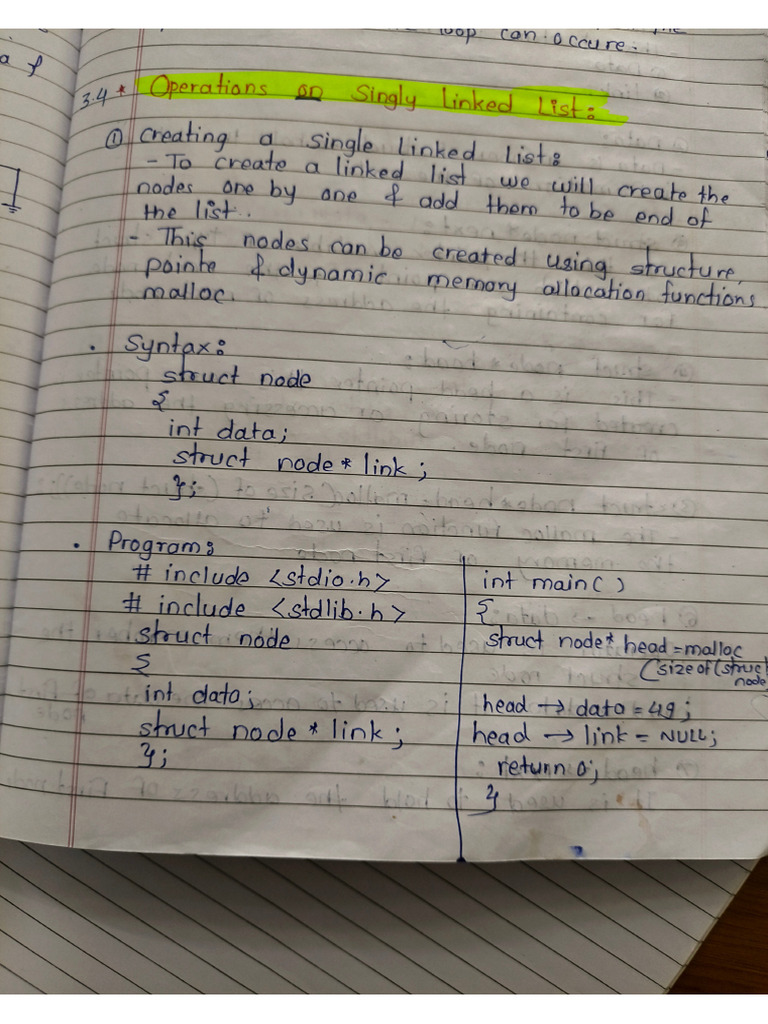 loop can occure.
a f
3.4 * Operations on Singly Linked List:
① Creating a single Linked List:
- To create a linked list we will create the
nodes one by one & add them to be end of
the list.
- This nodes can be created using structure,
pointe & dynamic memory allocation functions
malloc.
• Syntax:
struct node
{
int data;
struct node * link;
};
• Program:
# include <stdio.h>
# include <stdlib.h>
struct node
{
int data;
struct node * link;
};
int main()
{
struct node* head = malloc
(sizeof(struct
node
head → data = 49;
head → link = NULL;
return 0;
}